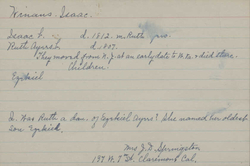 Winans, Isaac.
Isaac d. 1812. m. Ruth
Ruth Ayres d. 1807.
They moved from N.J. at an early date to & died there.
Children:
Ezekiel
Q. Was Ruth a dau. of Ezekiel Ayres? She named her oldest
son Ezekiel.
Mrs J. N.
197 W. 7 St. Claremont Cal.